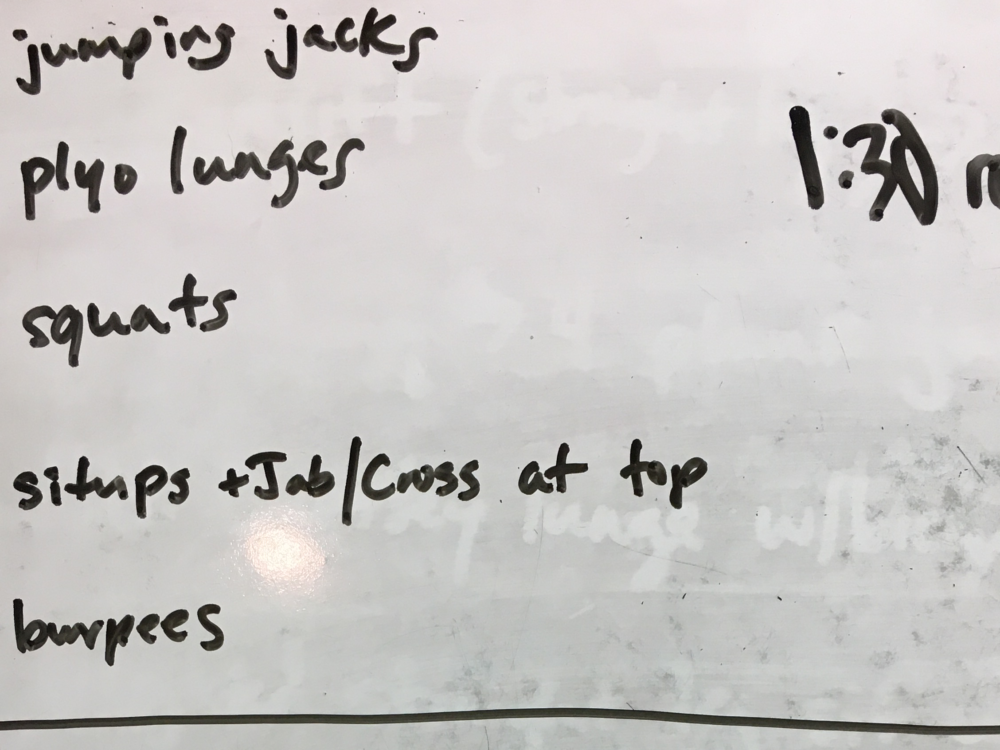 jumping jacks
plyo lunges
1:30
squats
situps + Jab/Cross at top
burpees